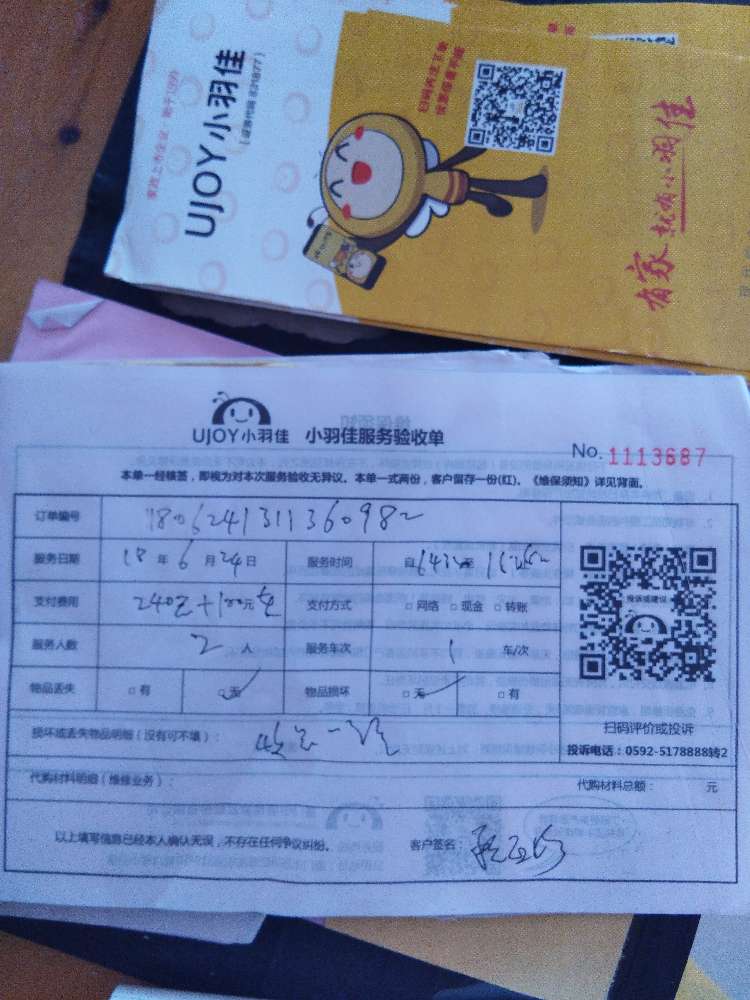 家政上市企业 始于1999
UJOY小羽佳
(证券代码 831877)
有家就有小羽佳
UJOY小羽佳 小羽佳服务验收单
No. 1113687
本单一经核签，即视为对本次服务验收无异议。本单一式两份，客户留存一份(红)。《维保须知》详见背面。
订单编号 1806241311360982
服务日期 18 年 6 月 24 日 服务时间 自 至
支付费用 240元+100元 支付方式 □网络 □现金 □转账
服务人数 2 人 服务车次 1 车/次
物品丢失 □有 □无 物品损坏 □无 □有
投诉或建议
扫码评价或投诉
投诉电话：0592-5178888转2
损坏或丢失物品明细（没有可不填）：
代购材料明细（维修业务）： 代购材料总额： 元
以上填写信息已经本人确认无误，不存在任何争议纠纷。 客户签名：